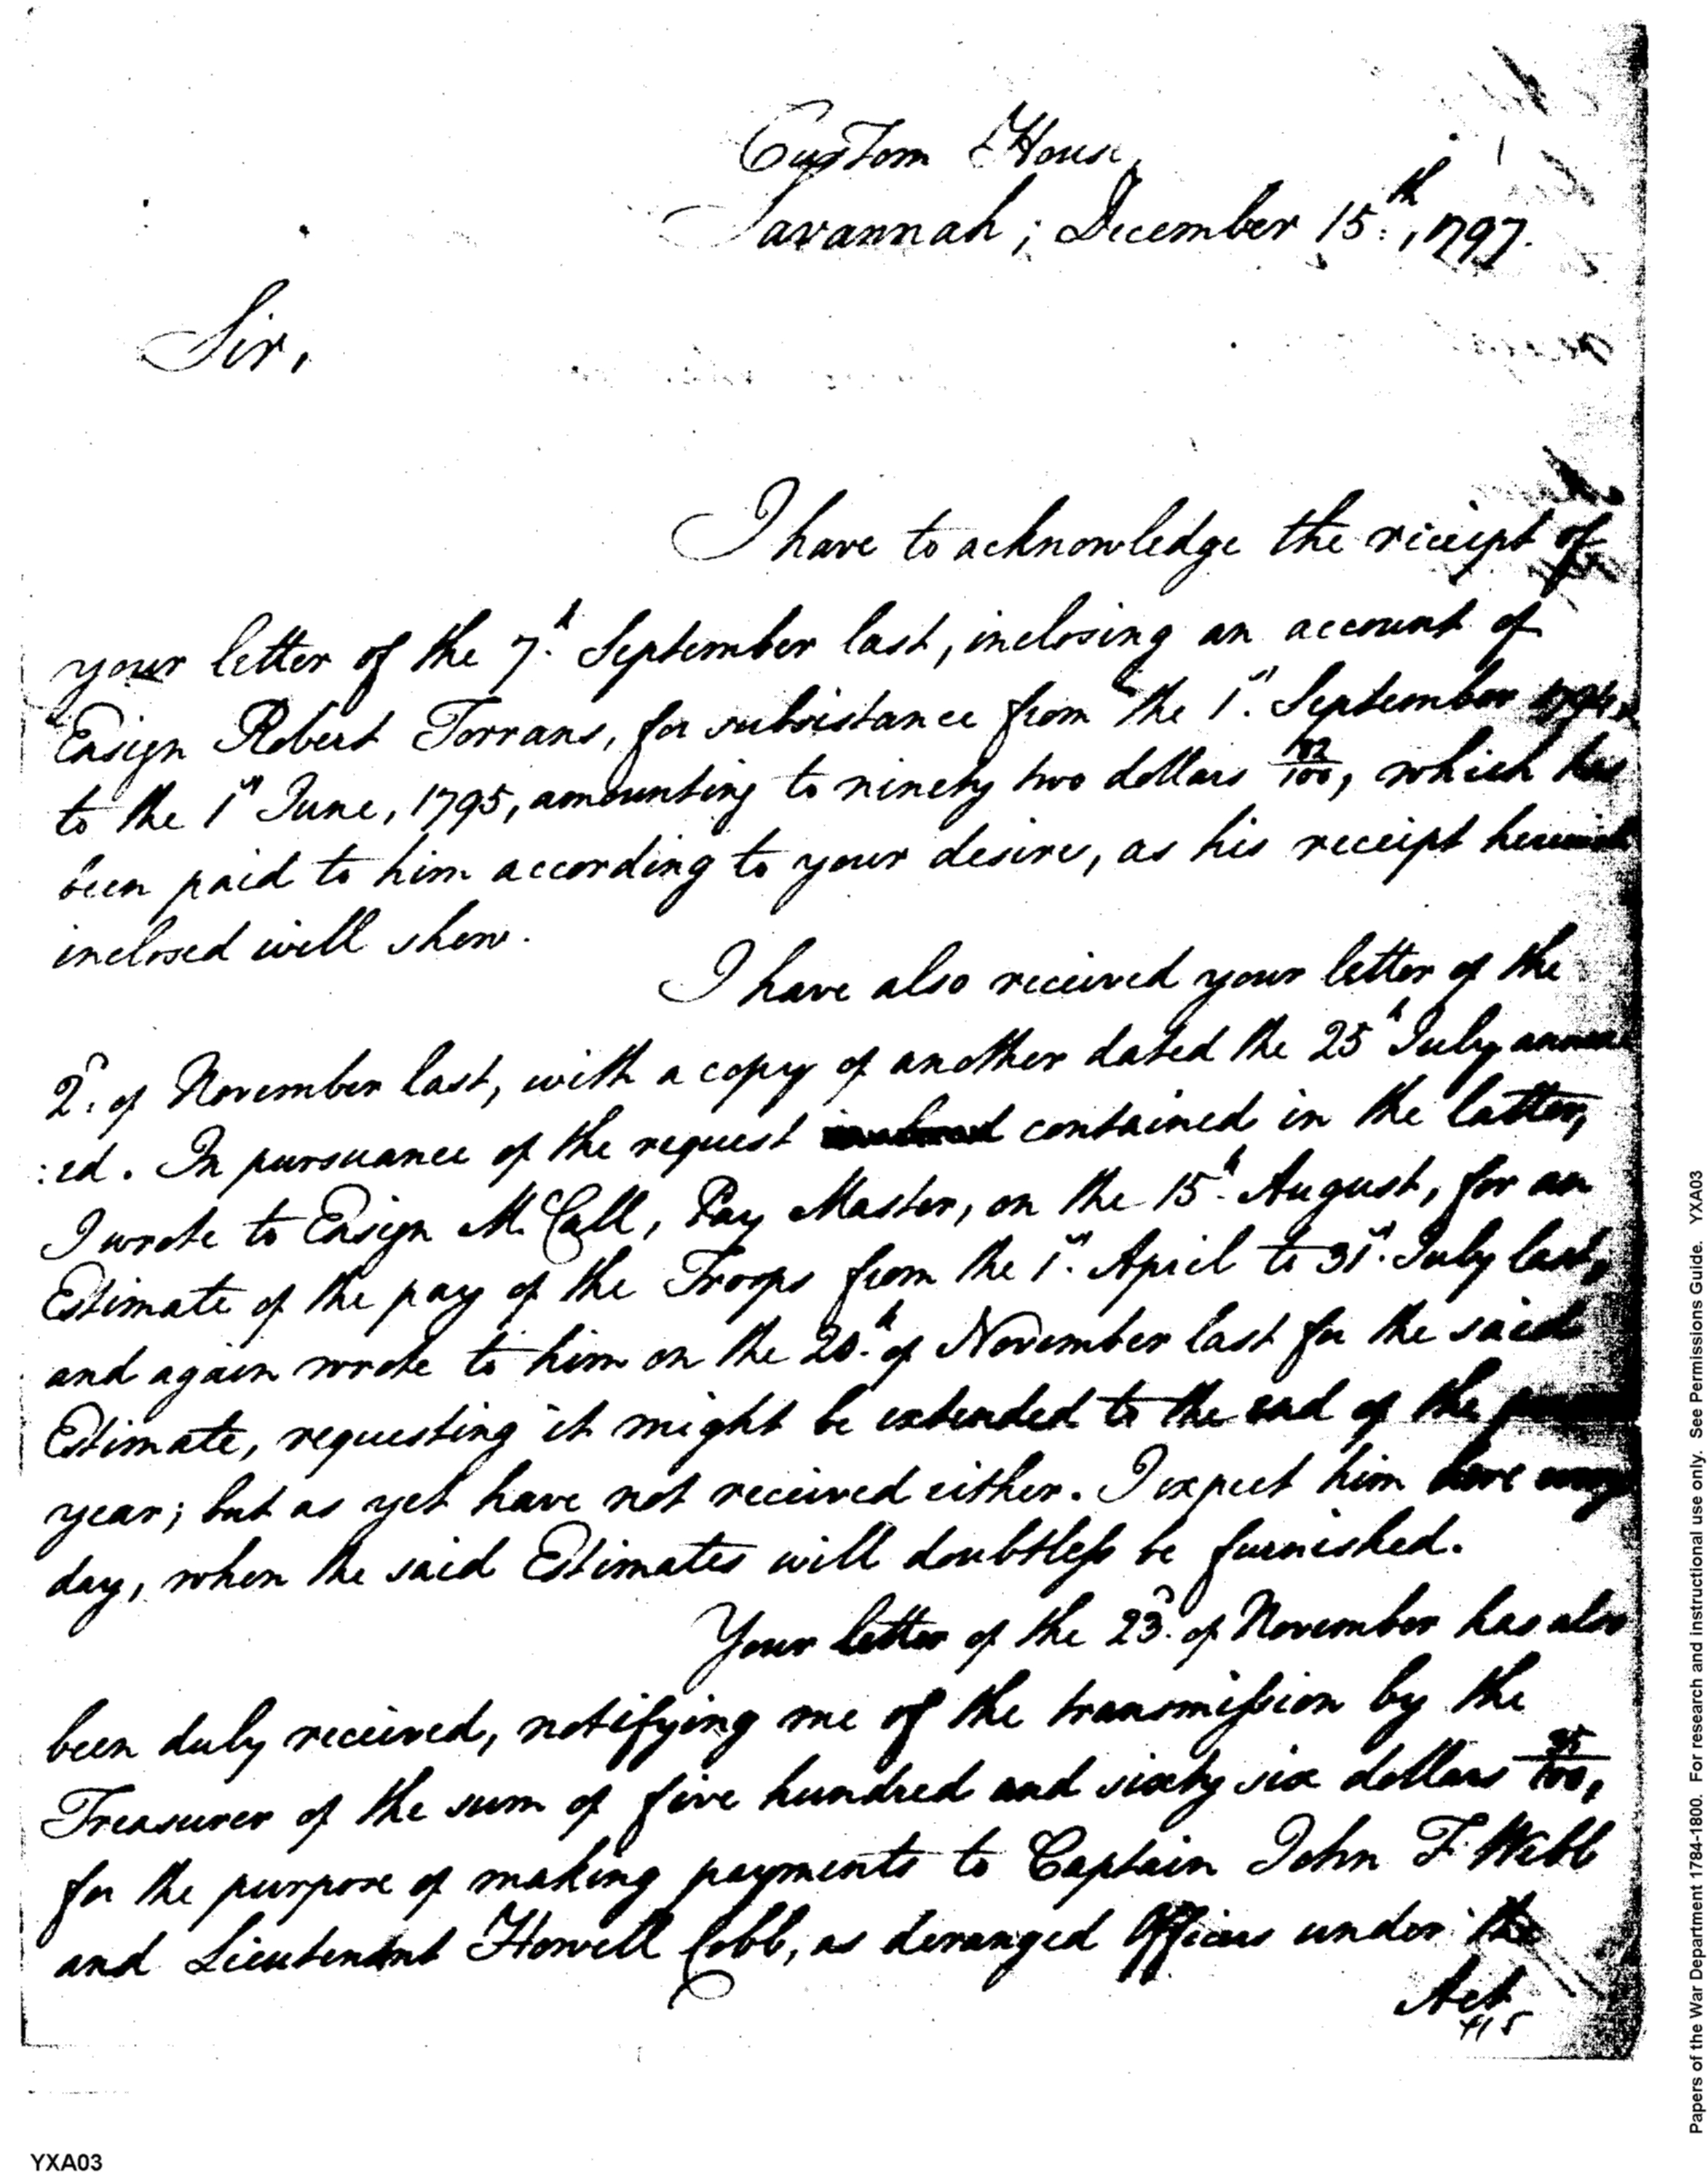 Custom House,
Savannah; December 15th, 1797.
Sir,
I have to acknowledge the receipt of
your letter of the 7h. September last, inclosing an account of
Ensign Robert Torrans, for subsistance from the 1st. September 1794,
to the 1st June, 1795, amounting to ninety two dollars 82/100, which has
been paid to him according to your desire, as his receipt herewith
inclosed will shew.
I have also received your letter of the
2d. of November last, with a copy of another dated the 25h July annex
:ed. In pursuance of the request contained in the latter,
I wrote to Ensign McCall, Pay Master, on the 15h. August, for an
Estimate of the pay of the Troops from the 1st. April to 31st. July last,
and again wrote to him on the 20.h of November last for the said
Estimate, requesting it might be extended to the end of the
year; but as yet have not received either. I expect him here every
day, when the said Estimates will doubtless be furnished.
Your letter of the 23d. of November has also
been duly received, notifying me of the transmission by the
Treasurer of the sum of five hundred and sixty six dollars 35/100,
for the purpose of making payments to Captain John F. Webb
and Lieutenant Howell Cobb, as deranged Officers under the
Act
YXA03
Papers of the War Department 1784-1800. For research and instructional use only. See Permissions Guide. YXA03